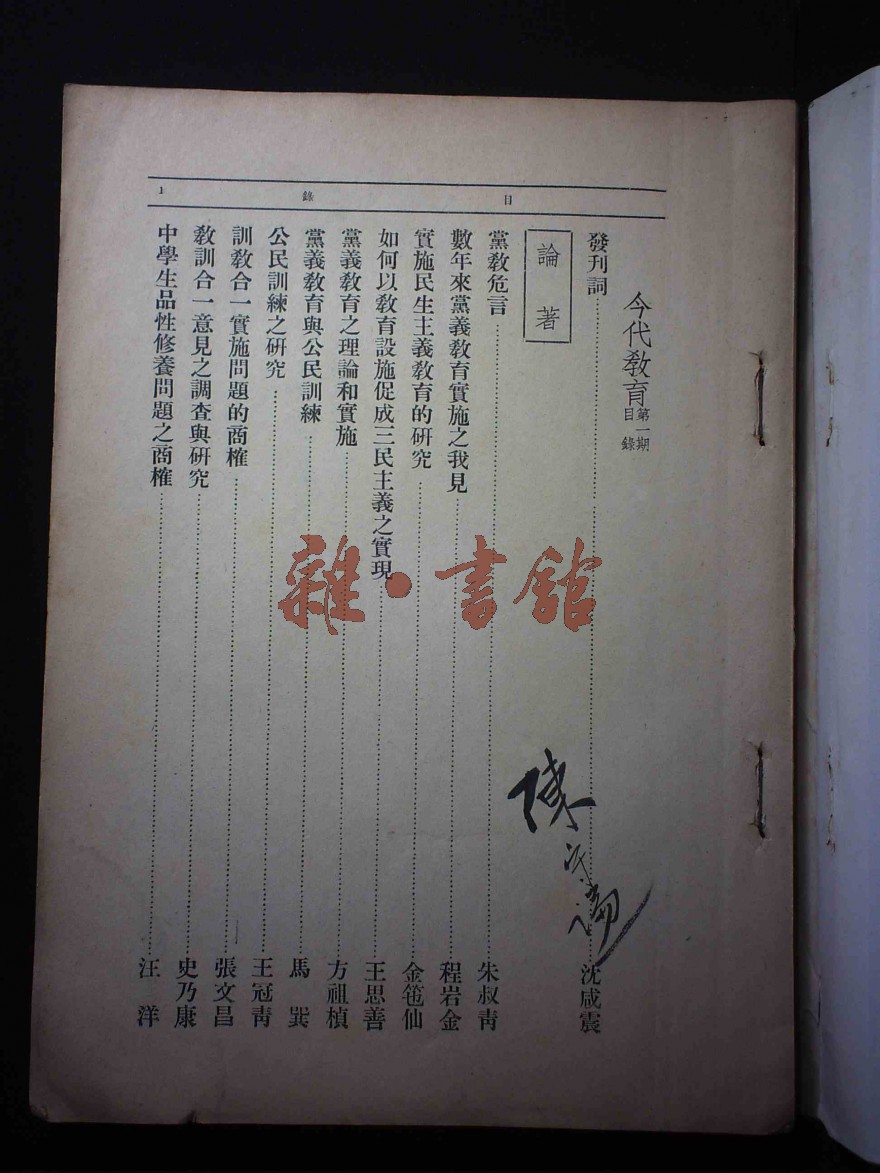 目錄 1
今代教育 第一期目錄
發刊詞 沈咸震
論著
黨教危言 朱叔靑
數年來黨義教育實施之我見 程岩金
實施民生主義教育的研究 金笣仙
如何以教育設施促成三民主義之實現 王思善
黨義教育之理論和實施 方祖楨
黨義教育與公民訓練 馬巽
公民訓練之研究 王冠靑
訓教合一實施問題的商榷 張文昌
教訓合一意見之調查與研究 史乃康
中學生品性修養問題之商榷 汪洋
雜·書館